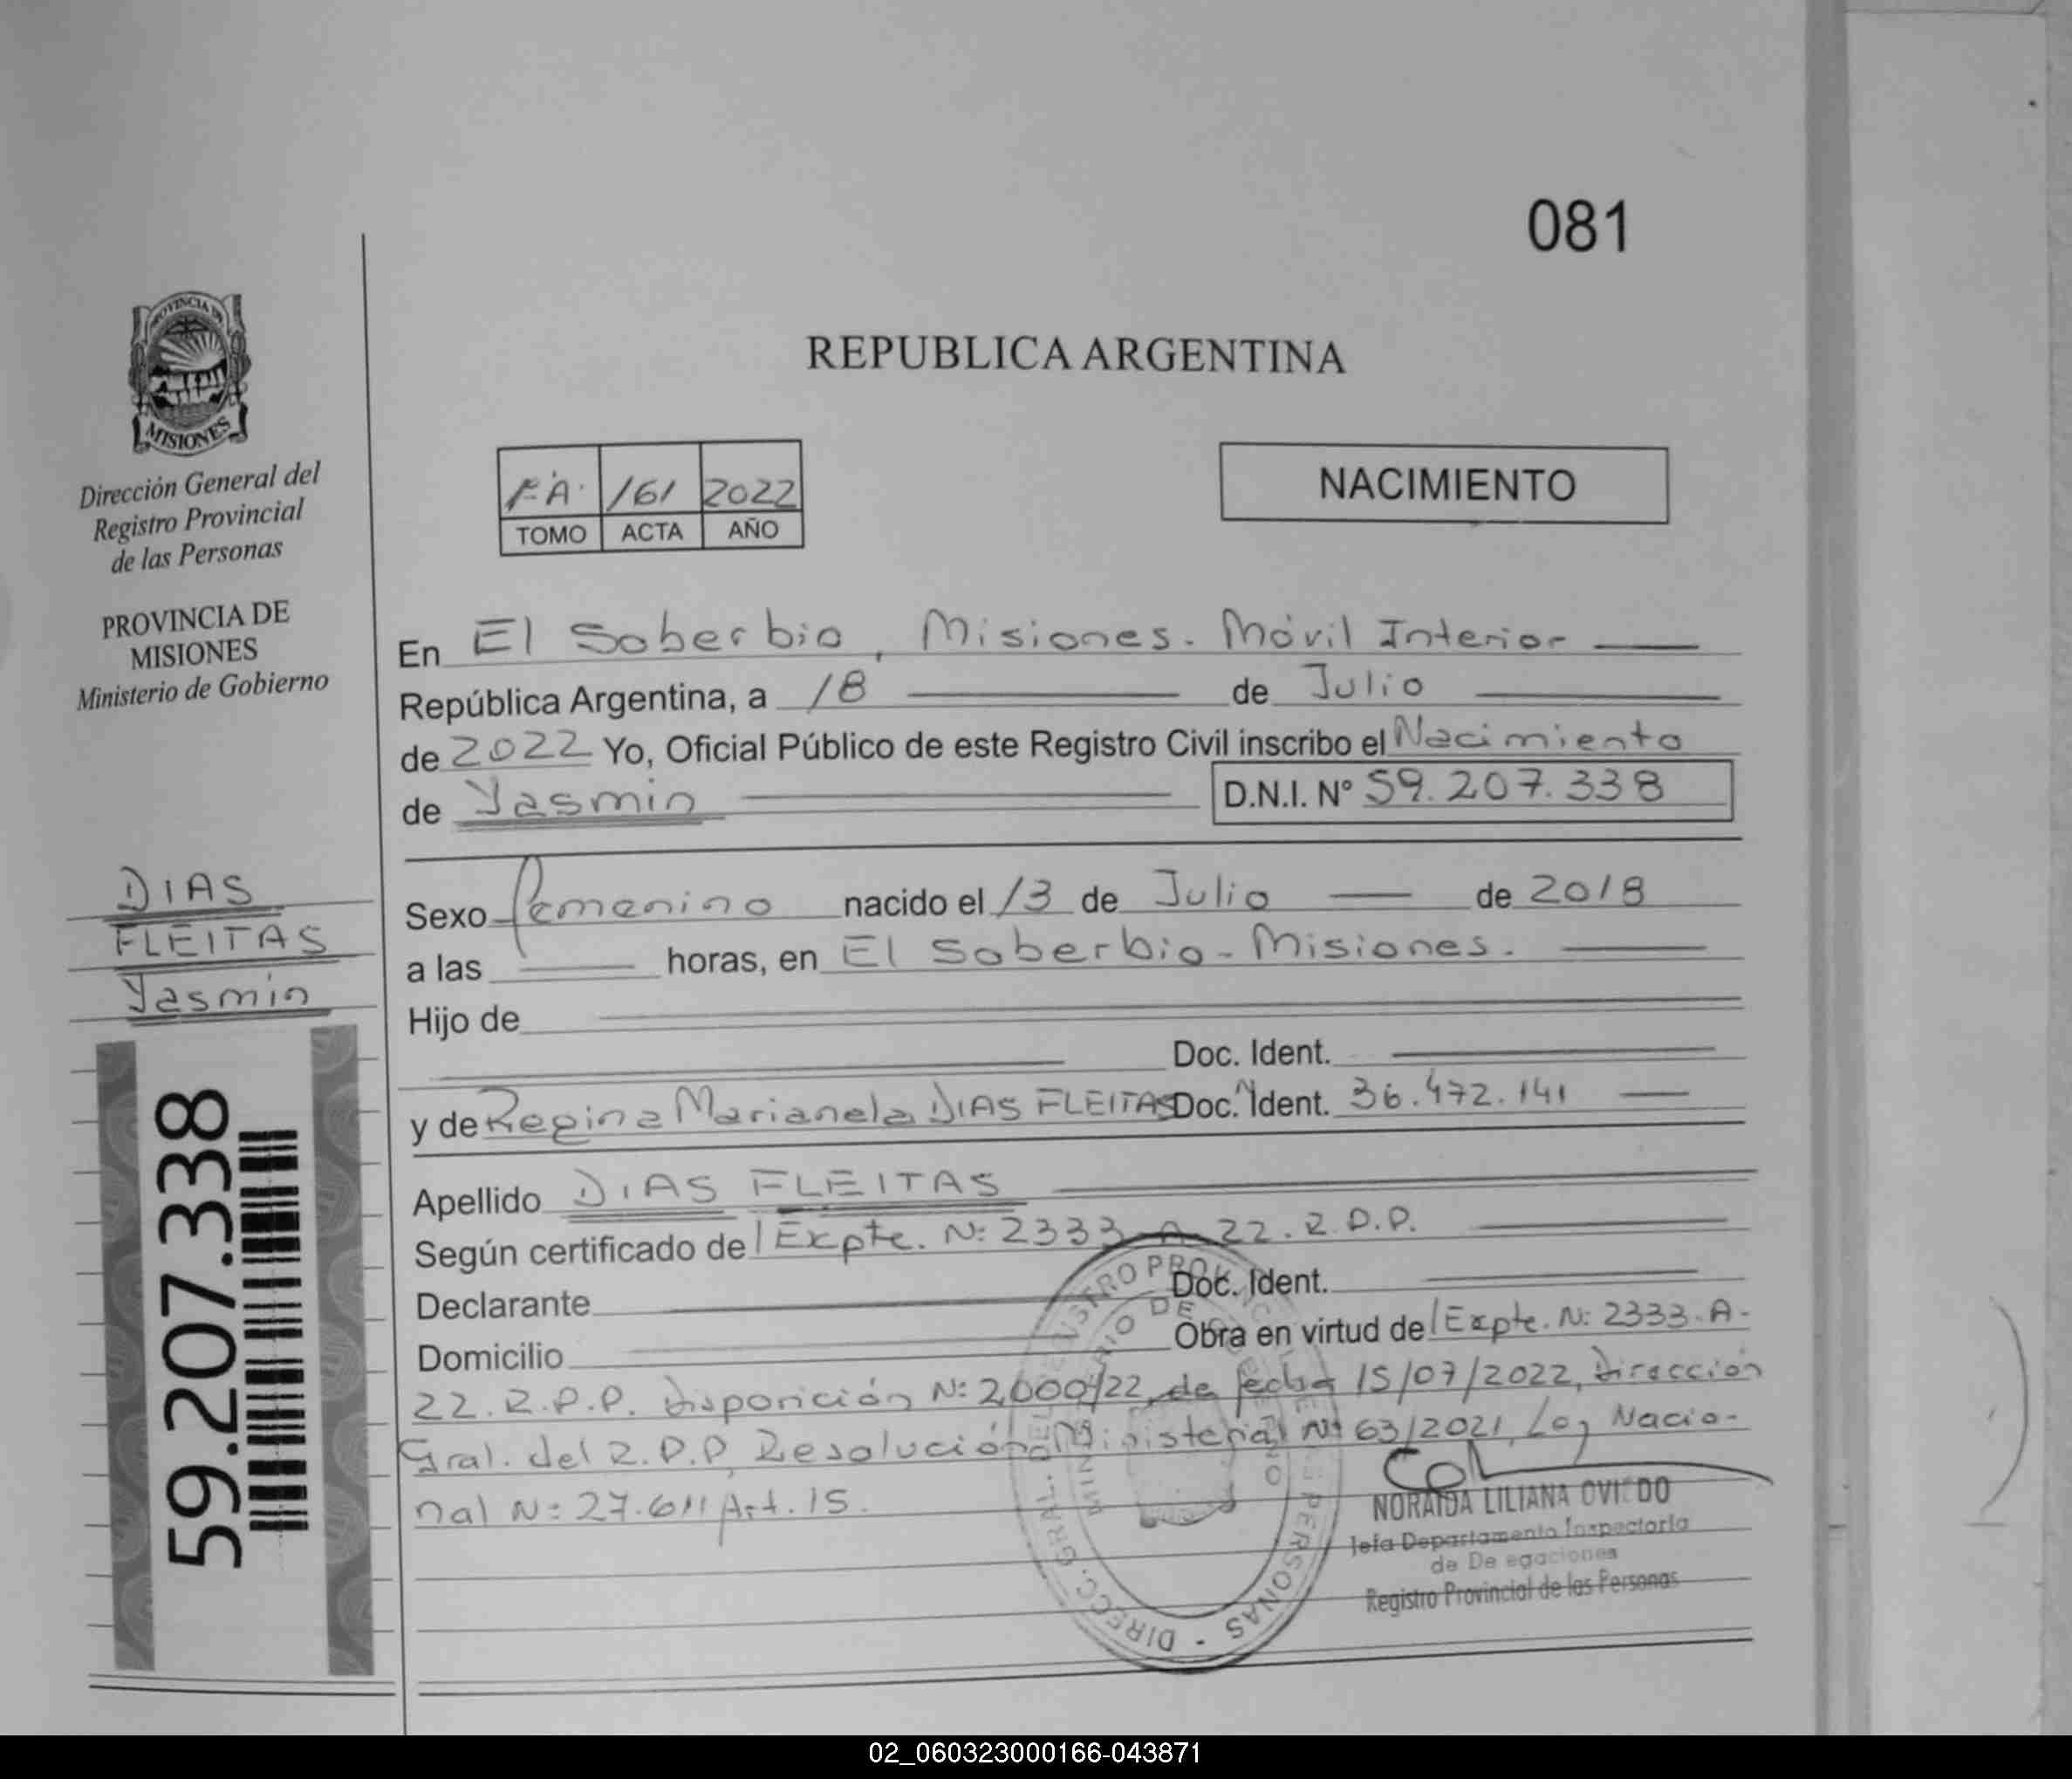 081
PROVINCIA DE
MISIONES
Dirección General del
Registro Provincial
de las Personas
PROVINCIA DE
MISIONES
Ministerio de Gobierno
REPUBLICA ARGENTINA
F.A. 161 2022
TOMO ACTA AÑO
NACIMIENTO
En El Soberbio, Misiones. Móvil Interior
República Argentina, a 18 de Julio
de 2022 Yo, Oficial Público de este Registro Civil inscribo el Nacimiento
de Yasmin D.N.I. N° 59.207.338
DIAS
FLEITAS
Yasmin
59.207.338
Sexo femenino nacido el 13 de Julio de 2018
a las horas, en El Soberbio - Misiones.
Hijo de
Doc. Ident.
y de Regina Marianela DIAS FLEITAS Doc. N Ident. 36.472.141
Apellido DIAS FLEITAS
Según certificado de Expte. N: 2333 A 22. R.P.P.
Declarante Doc. Ident.
Domicilio Obra en virtud de Expte. N: 2333-A-
22. R.P.P. Disposición N: 2000/22, de fecha 15/07/2022, Dirección
Gral. del R.P.P, Resolución Ministerial N: 63/2021, Ley Nacio-
nal N: 27.611 Art. 15.
DIRECC. GRAL. DEL REGISTRO PROVINCIAL DE LAS PERSONAS -
MINISTERIO DE GOBIERNO
NORAIDA LILIANA OVIEDO
Jefa Departamento Inspectoria
de De egaciones
Registro Provincial de las Personas
02_060323000166-043871